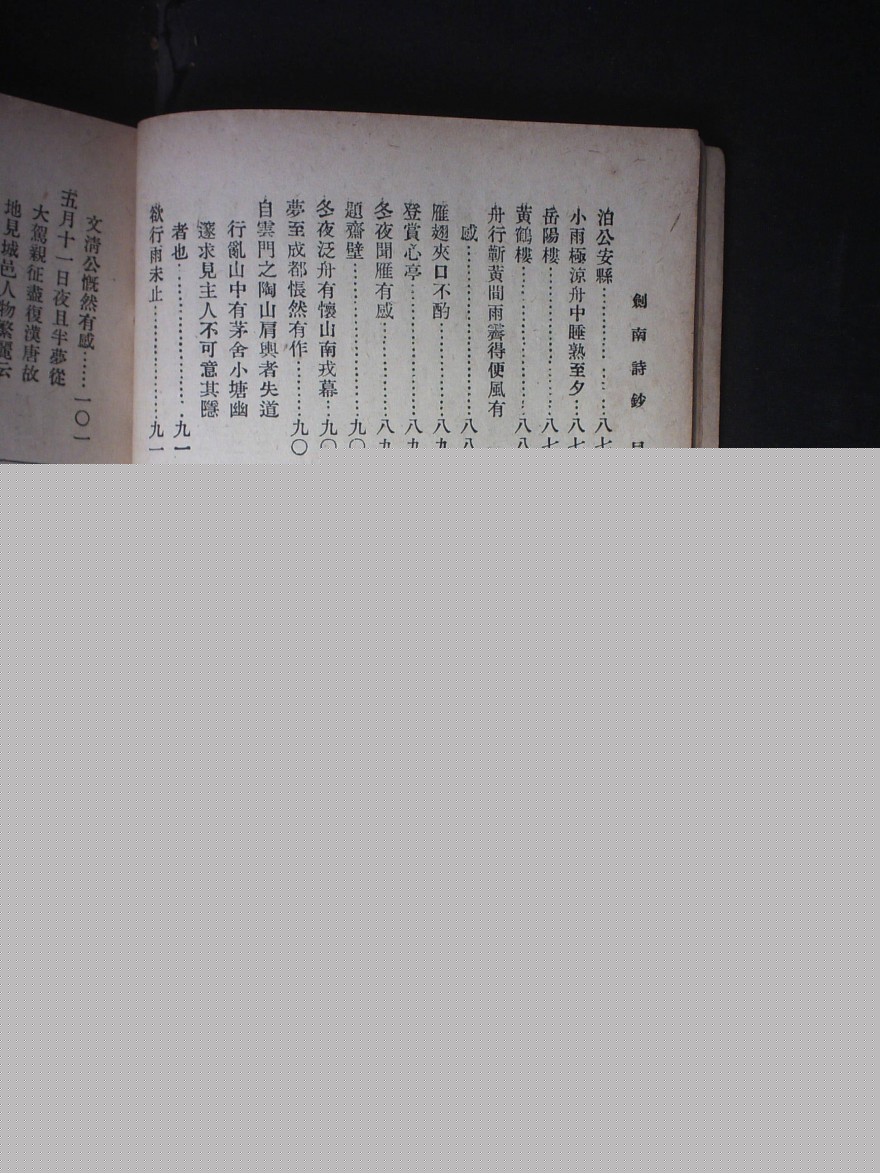 劍南詩鈔
泊公安縣……………………八七
小雨極涼舟中睡熟至夕…八七
岳陽樓……………………八七
黃鶴樓……………………八八
舟行蘄黃間雨霽得便風有
感……………………八八
雁翅夾口不酌……………八九
登賞心亭…………………八九
冬夜聞雁有感……………八九
題齋壁……………………九〇
冬夜泛舟有懷山南戎幕…九〇
夢至成都悵然有作………九〇
自雲門之陶山肩輿者失道
行亂山中有茅舍小塘幽
邃求見主人不可意其隱
者也……………………九一
欲行雨未止………………九一
文清公慨然有感……一〇一
五月十一日夜且半夢從
大駕親征盡復漢唐故
地見城邑人物繁麗云